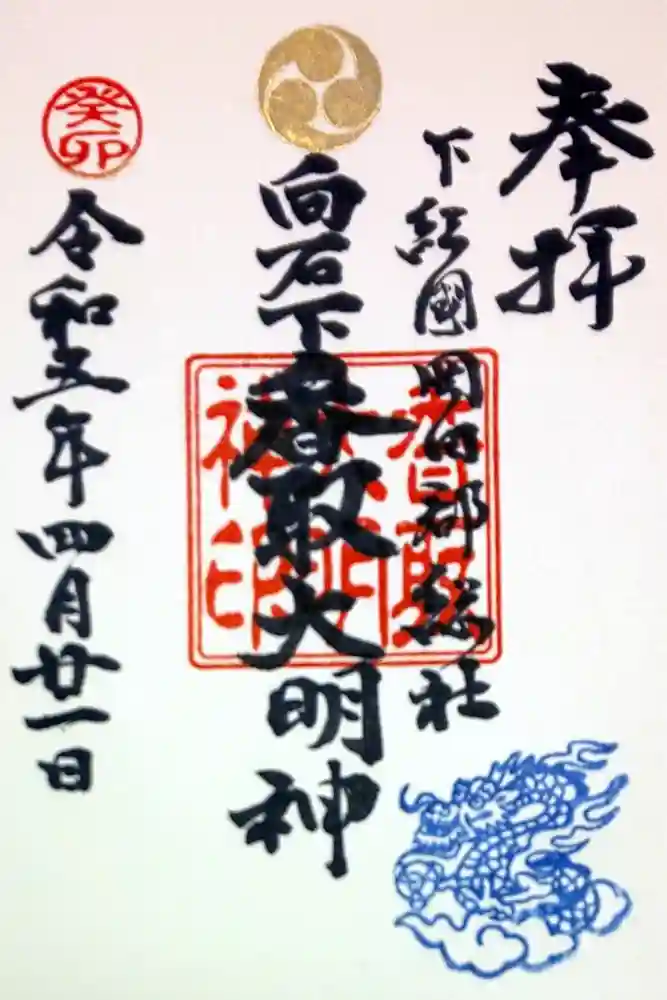 奉拝
下総國岡田郡総社
向石下香取大明神
香取大明神印
癸卯
令和五年四月廿一日